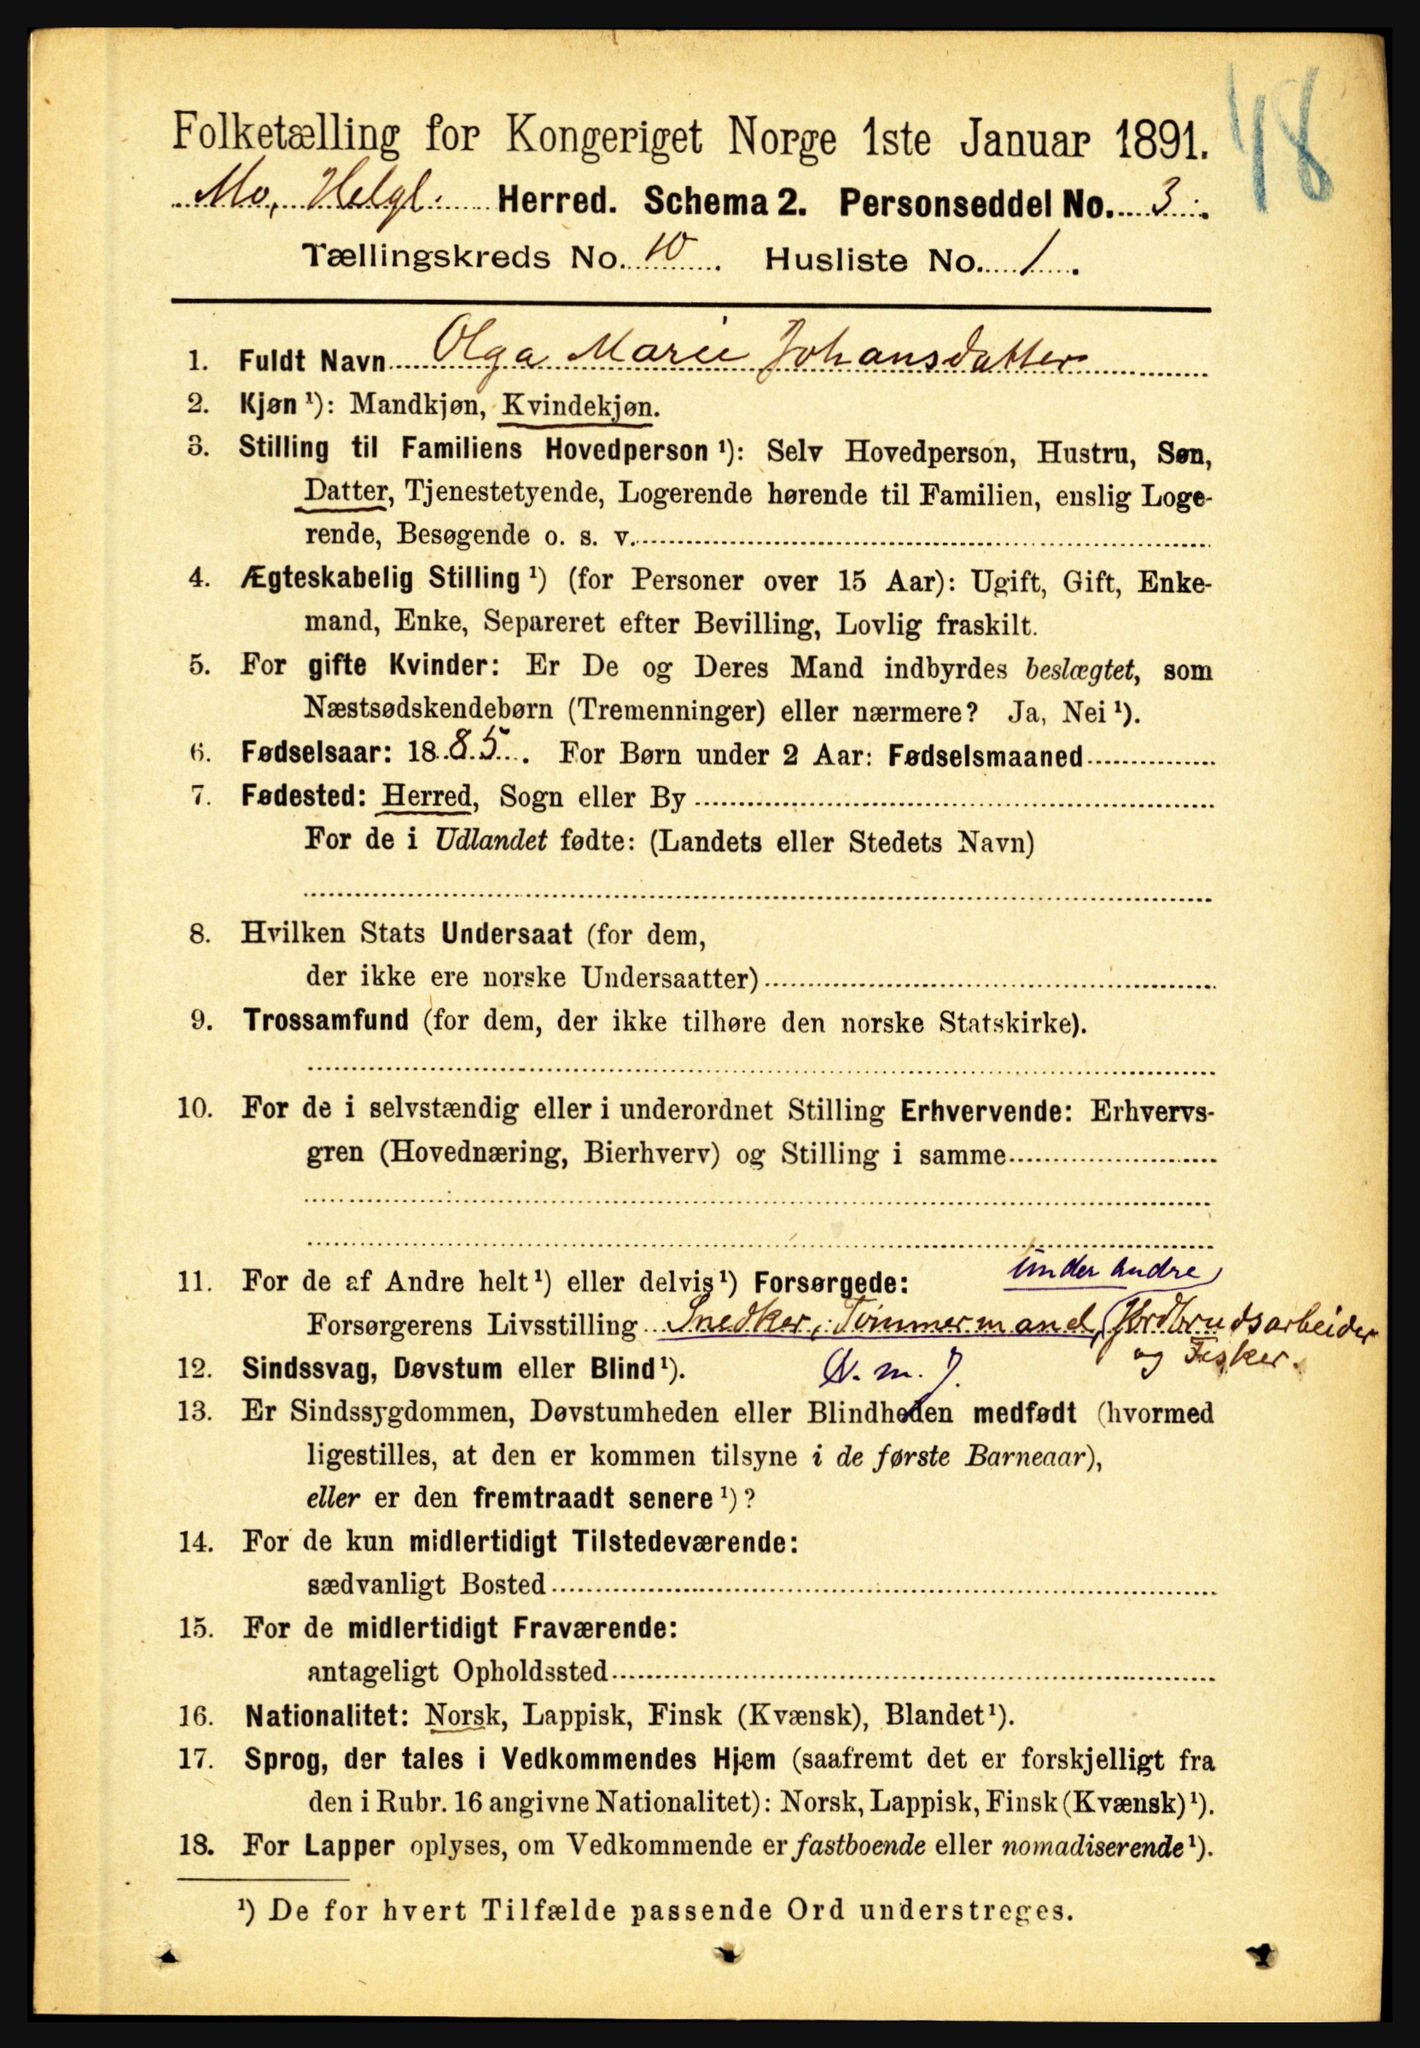 48
Folketælling for Kongeriget Norge 1ste Januar 1891.
Mo, Helgl. Herred. Schema 2. Personseddel No. 3.
Tællingskreds No. 10. Husliste No. 1.
1. Fuldt Navn Olga Marie Johansdatter
2. Kjøn ¹): Mandkjøn, Kvindekjøn.
3. Stilling til Familiens Hovedperson ¹): Selv Hovedperson, Hustru, Søn,
Datter, Tjenestetyende, Logerende hørende til Familien, enslig Loge-
rende, Besøgende o. s. v.
4. Ægteskabelig Stilling ¹) (for Personer over 15 Aar): Ugift, Gift, Enke-
mand, Enke, Separeret efter Bevilling, Lovlig fraskilt.
5. For gifte Kvinder: Er De og Deres Mand indbyrdes beslægtet, som
Næstsødskendebørn (Tremenninger) eller nærmere? Ja, Nei ¹).
6. Fødselsaar: 1885. For Børn under 2 Aar: Fødselsmaaned
7. Fødested: Herred, Sogn eller By
For de i Udlandet fødte: (Landets eller Stedets Navn)
8. Hvilken Stats Undersaat (for dem,
der ikke ere norske Undersaatter)
9. Trossamfund (for dem, der ikke tilhøre den norske Statskirke).
10. For de i selvstændig eller i underordnet Stilling Erhvervende: Erhvervs-
gren (Hovednæring, Bierhverv) og Stilling i samme
under andre
11. For de af Andre helt ¹) eller delvis ¹) Forsørgede:
Forsørgerens Livsstilling Snedker, Tømmermand, Jordbrudsarbeider
og Fisker.
12. Sindssvag, Døvstum eller Blind ¹).
13. Er Sindssygdommen, Døvstumheden eller Blindheden medfødt (hvormed
ligestilles, at den er kommen tilsyne i de første Barneaar),
eller er den fremtraadt senere ¹)?
14. For de kun midlertidigt Tilstedeværende:
sædvanligt Bosted
15. For de midlertidigt Fraværende:
antageligt Opholdssted
16. Nationalitet: Norsk, Lappisk, Finsk (Kvænsk), Blandet ¹).
17. Sprog, der tales i Vedkommendes Hjem (saafremt det er forskjelligt fra
den i Rubr. 16 angivne Nationalitet): Norsk, Lappisk, Finsk (Kvænsk) ¹).
18. For Lapper oplyses, om Vedkommende er fastboende eller nomadiserende ¹).
¹) De for hvert Tilfælde passende Ord understreges.